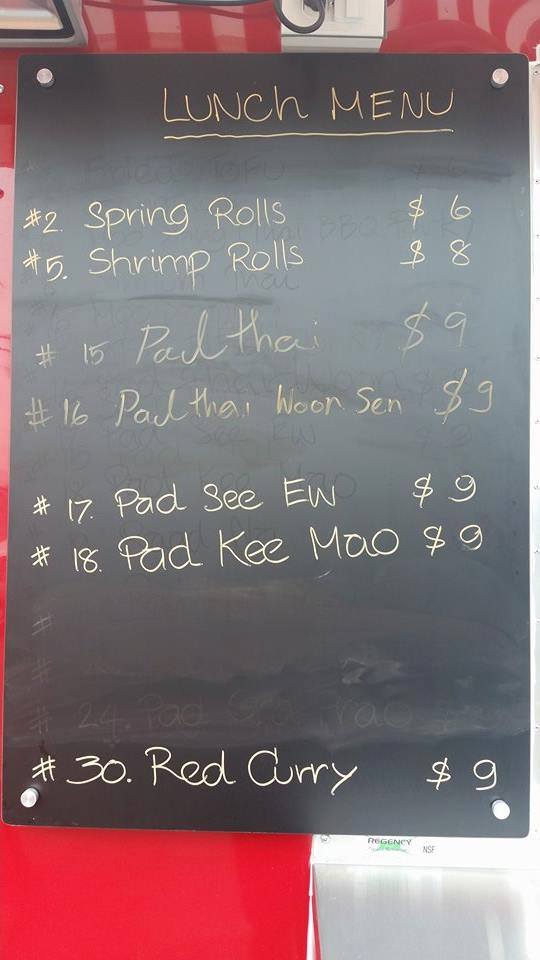 LUNCH MENU
Fried Tofu $ 6
#2. Spring Rolls $ 6
#5. Shrimp Rolls $ 8
# 15 Pad thai $ 9
# 16 Pad thai Woon Sen $9
# 17. Pad See EW $ 9
# 18. Pad Kee Mao $ 9
#
#
# 24. Pad
# 30. Red Curry $ 9
REGENCY NSF